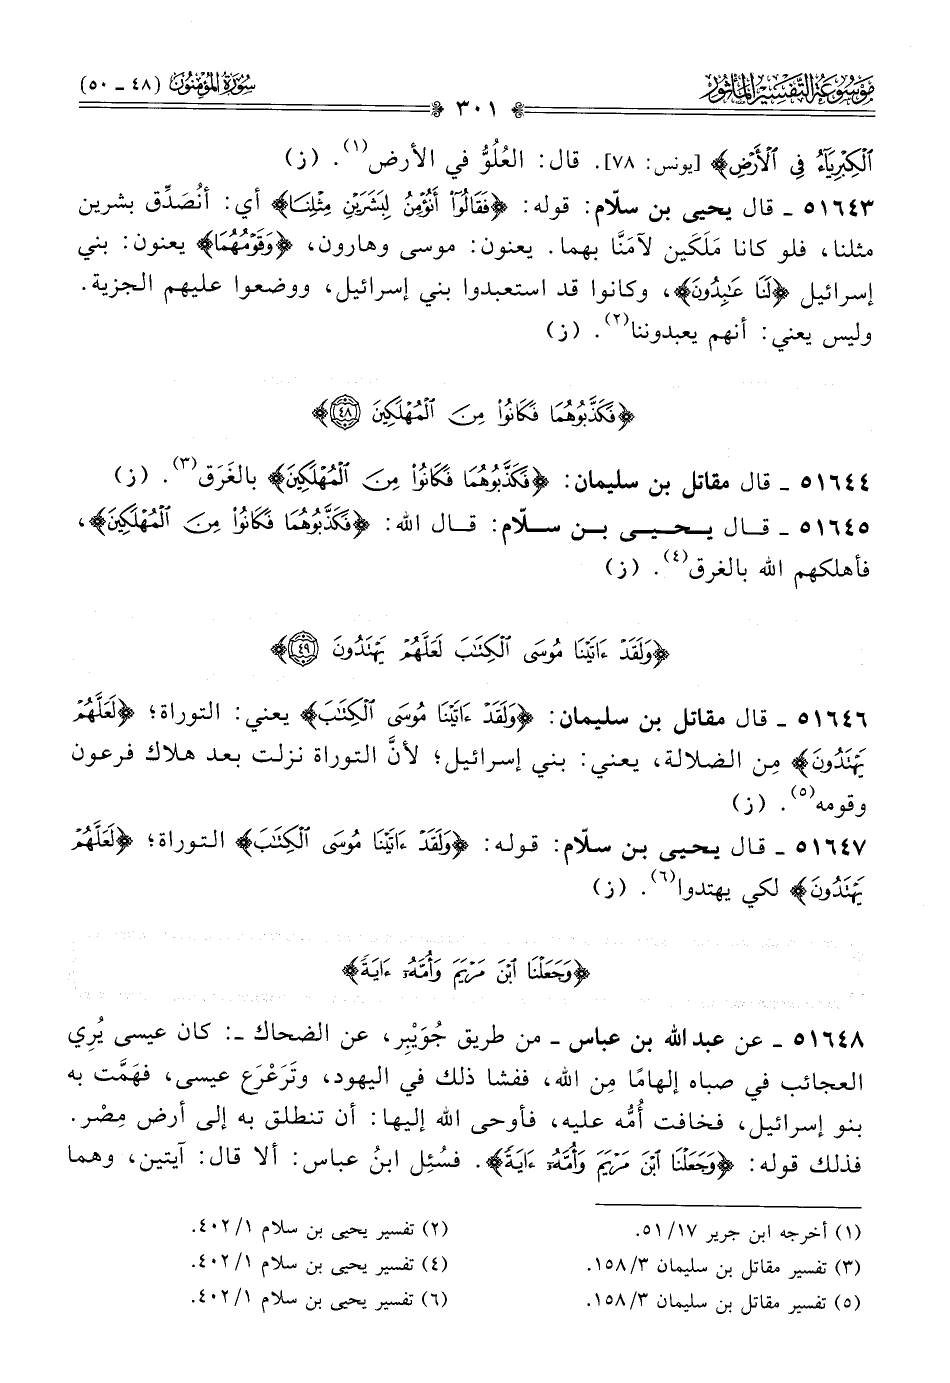 مَوْسُوعَة التَّفْسِير المَأْثُور
٣٠١
سُورَةُ المُؤْمِنُون (٤٨ ـ ٥٠)
ٱلْكِبْرِيَآءُ فِى ٱلْأَرْضِ﴾ [يونس: ٧٨]. قال: العُلُوُّ في الأرض(١). (ز)
٥١٦٤٣ ـ قال يحيى بن سلّام: قوله: ﴿فَقَالُوٓا۟ أَنُؤْمِنُ لِبَشَرَيْنِ مِثْلِنَا﴾ أي: أنُصَدِّق بشرين
مثلنا، فلو كانا مَلَكين لآمَنَّا بهما. يعنون: موسى وهارون، ﴿وَقَوْمُهُمَا﴾ يعنون: بني
إسرائيل ﴿لَنَا عَٰبِدُونَ﴾، وكانوا قد استعبدوا بني إسرائيل، ووضعوا عليهم الجزية.
وليس يعني: أنهم يعبدوننا(٢). (ز)
﴿فَكَذَّبُوهُمَا فَكَانُوا۟ مِنَ ٱلْمُهْلَكِينَ ٤٨﴾
٥١٦٤٤ ـ قال مقاتل بن سليمان: ﴿فَكَذَّبُوهُمَا فَكَانُوا۟ مِنَ ٱلْمُهْلَكِينَ﴾ بالغَرَق(٣). (ز)
٥١٦٤٥ ـ قال يحيى بن سلّام: قال الله: ﴿فَكَذَّبُوهُمَا فَكَانُوا۟ مِنَ ٱلْمُهْلَكِينَ﴾،
فأهلكهم الله بالغرق(٤). (ز)
﴿وَلَقَدْ ءَاتَيْنَا مُوسَى ٱلْكِتَٰبَ لَعَلَّهُمْ يَهْتَدُونَ ٤٩﴾
٥١٦٤٦ ـ قال مقاتل بن سليمان: ﴿وَلَقَدْ ءَاتَيْنَا مُوسَى ٱلْكِتَٰبَ﴾ يعني: التوراة؛ ﴿لَعَلَّهُمْ
يَهْتَدُونَ﴾ مِن الضلالة، يعني: بني إسرائيل؛ لأنَّ التوراة نزلت بعد هلاك فرعون
وقومه(٥). (ز)
٥١٦٤٧ ـ قال يحيى بن سلّام: قوله: ﴿وَلَقَدْ ءَاتَيْنَا مُوسَى ٱلْكِتَٰبَ﴾ التوراة؛ ﴿لَعَلَّهُمْ
يَهْتَدُونَ﴾ لكي يهتدوا(٦). (ز)
﴿وَجَعَلْنَا ٱبْنَ مَرْيَمَ وَأُمَّهُۥٓ ءَايَةً﴾
٥١٦٤٨ ـ عن عبد الله بن عباس ـ من طريق جُوَيْبِر، عن الضحاك ـ: كان عيسى يُري
العجائب في صباه إلهامًا مِن الله، ففشا ذلك في اليهود، وتَرَعْرَع عيسى، فهَمَّت به
بنو إسرائيل، فخافت أُمُّه عليه، فأوحى الله إليها: أن تنطلق به إلى أرض مِصْر.
فذلك قوله: ﴿وَجَعَلْنَا ٱبْنَ مَرْيَمَ وَأُمَّهُۥٓ ءَايَةً﴾. فسُئِل ابنُ عباس: ألا قال: آيتين، وهما
(١) أخرجه ابن جرير ١٧/ ٥١.
(٢) تفسير يحيى بن سلام ١/ ٤٠٢.
(٣) تفسير مقاتل بن سليمان ٣/ ١٥٨.
(٤) تفسير يحيى بن سلام ١/ ٤٠٢.
(٥) تفسير مقاتل بن سليمان ٣/ ١٥٨.
(٦) تفسير يحيى بن سلام ١/ ٤٠٢.